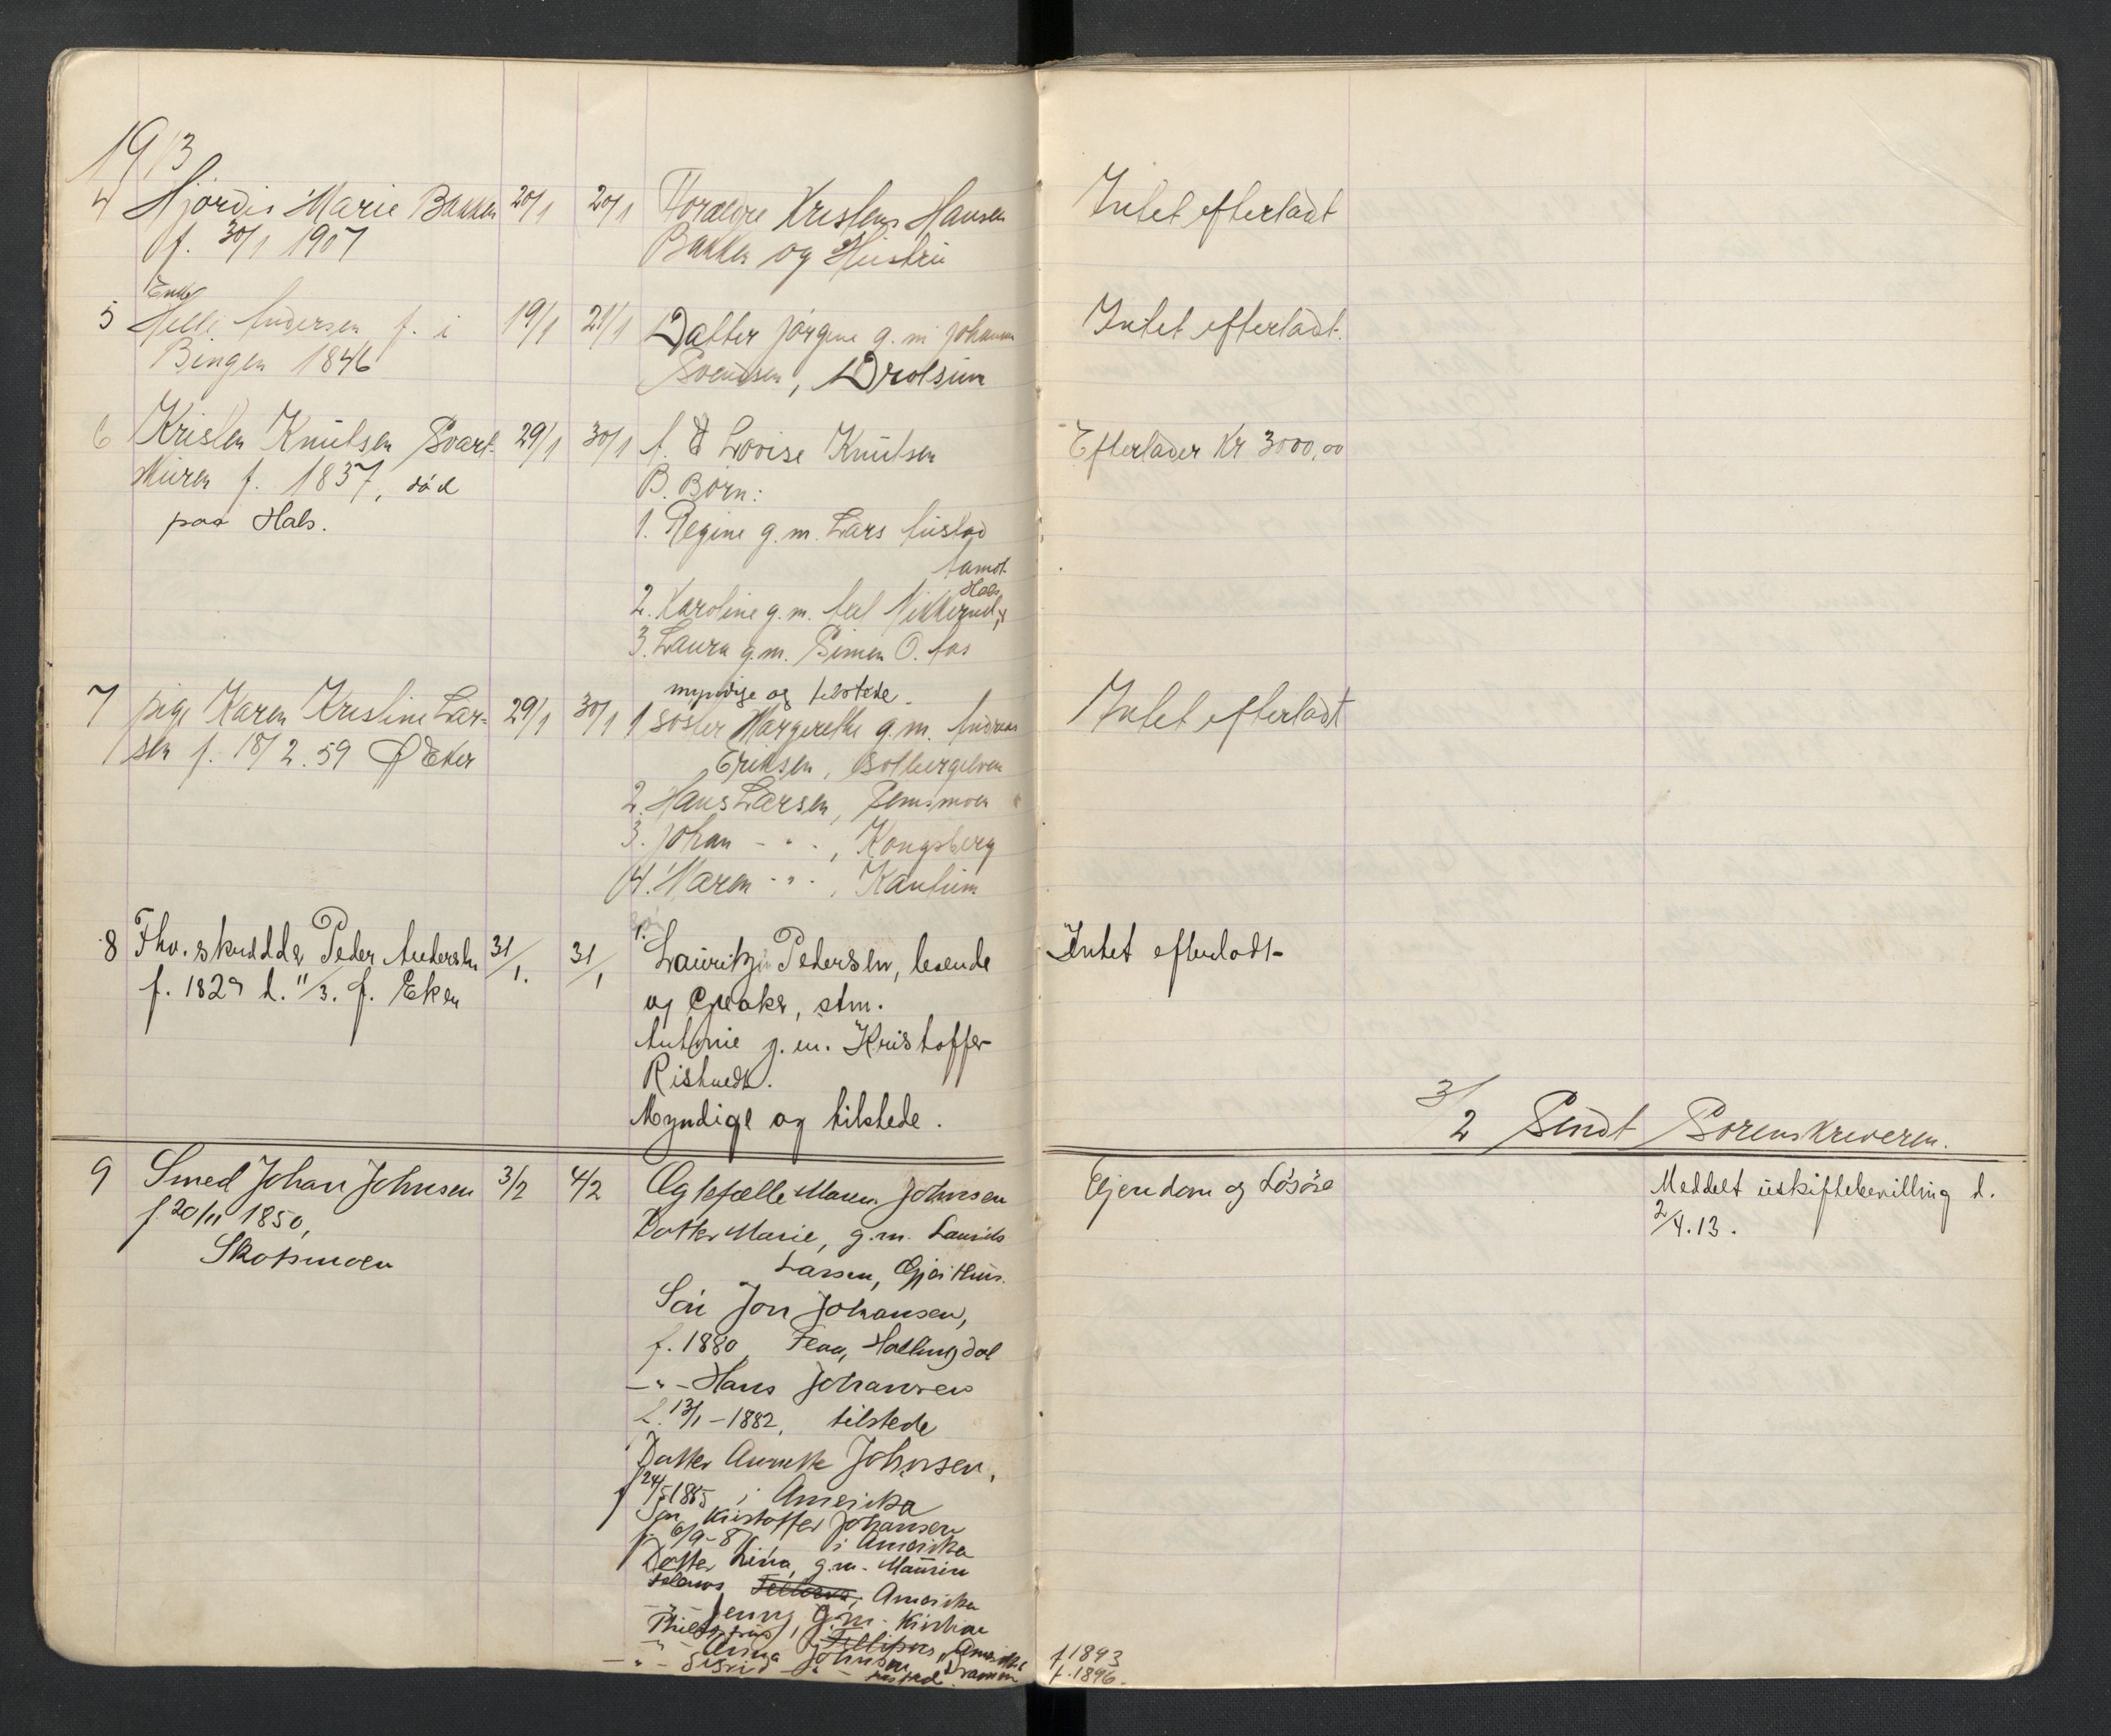 1913
4 Hjørdis Marie Bakken 20/1 20/1 Forældre Kristens Hansen Intet efterladt
f. 30/1 1907 Bakken og Hustru
Enke
5 Helle Andersen f. i 19/1 21/1 Datter Jørgine g. m Johannes Intet efterladt.
Bingen 1846 Svendsen, Drolsum
6 Kristen Knutsen Svart- 29/1 30/1 A. E Lovise Knutsen Efterlader Kr 3000,00
muren f. 1837, död B. Børn:
paa Hals. 1. Regine g. m. Lars Austad
Aamot.
Hals,
2. Karoline g. m. Axel Nikkerud,
3. Laura g. m. Simen O. Aas
myndige og tilstede.
7 pige Karen Kristine Lar- 29/1 30/1 1 søster Margrethe g. m. Andreas Intet efterladt
sen f. 18/2. 59 Ø Eker Eriksen, Solbergelven
2. Hans Larsen, Semsmoen
3. Johan - " -, Kongsberg
4. Maren - " -, Kantum
8 Fhv. Peder Andersen 31/1. 31/1 1. Lauritz Pedersen, Intet efterladt
f. 1829 d. 11/3. f. Eker og stm.
Antonie g. m. Kristoffer
Myndige og tilstede.
3/2 Sendt Sorenskriveren.
9 Smed Johan Johnsen 3/2 4/2 Ægtefælle Maren Johnsen Ejendom og Løsøre Meddelt uskiftebevilling d.
f. 20/11 1850, Datter Marie, g. m. Laurits 2/4. 13.
Skotsmoen Larsen, Gjeithus.
Søn Jon Johansen,
f. 1880, Flaa, Hallingdal
- " - Hans Johansen
f. 13/1 - 1882, tilstede
Datter Annette Johnsen,
f 24/5 1885 i Amerika
Søn Kristoffer Johansen
f. 6/9 - 87, i Amerika
Datter Lina, g. m. Maurin
Amerika
- " - Jenny, g. m. Kristian
Amerika
- " - Anna Johnsen, Drammen f 1893
- " - Sigrid - " - f. 1896.